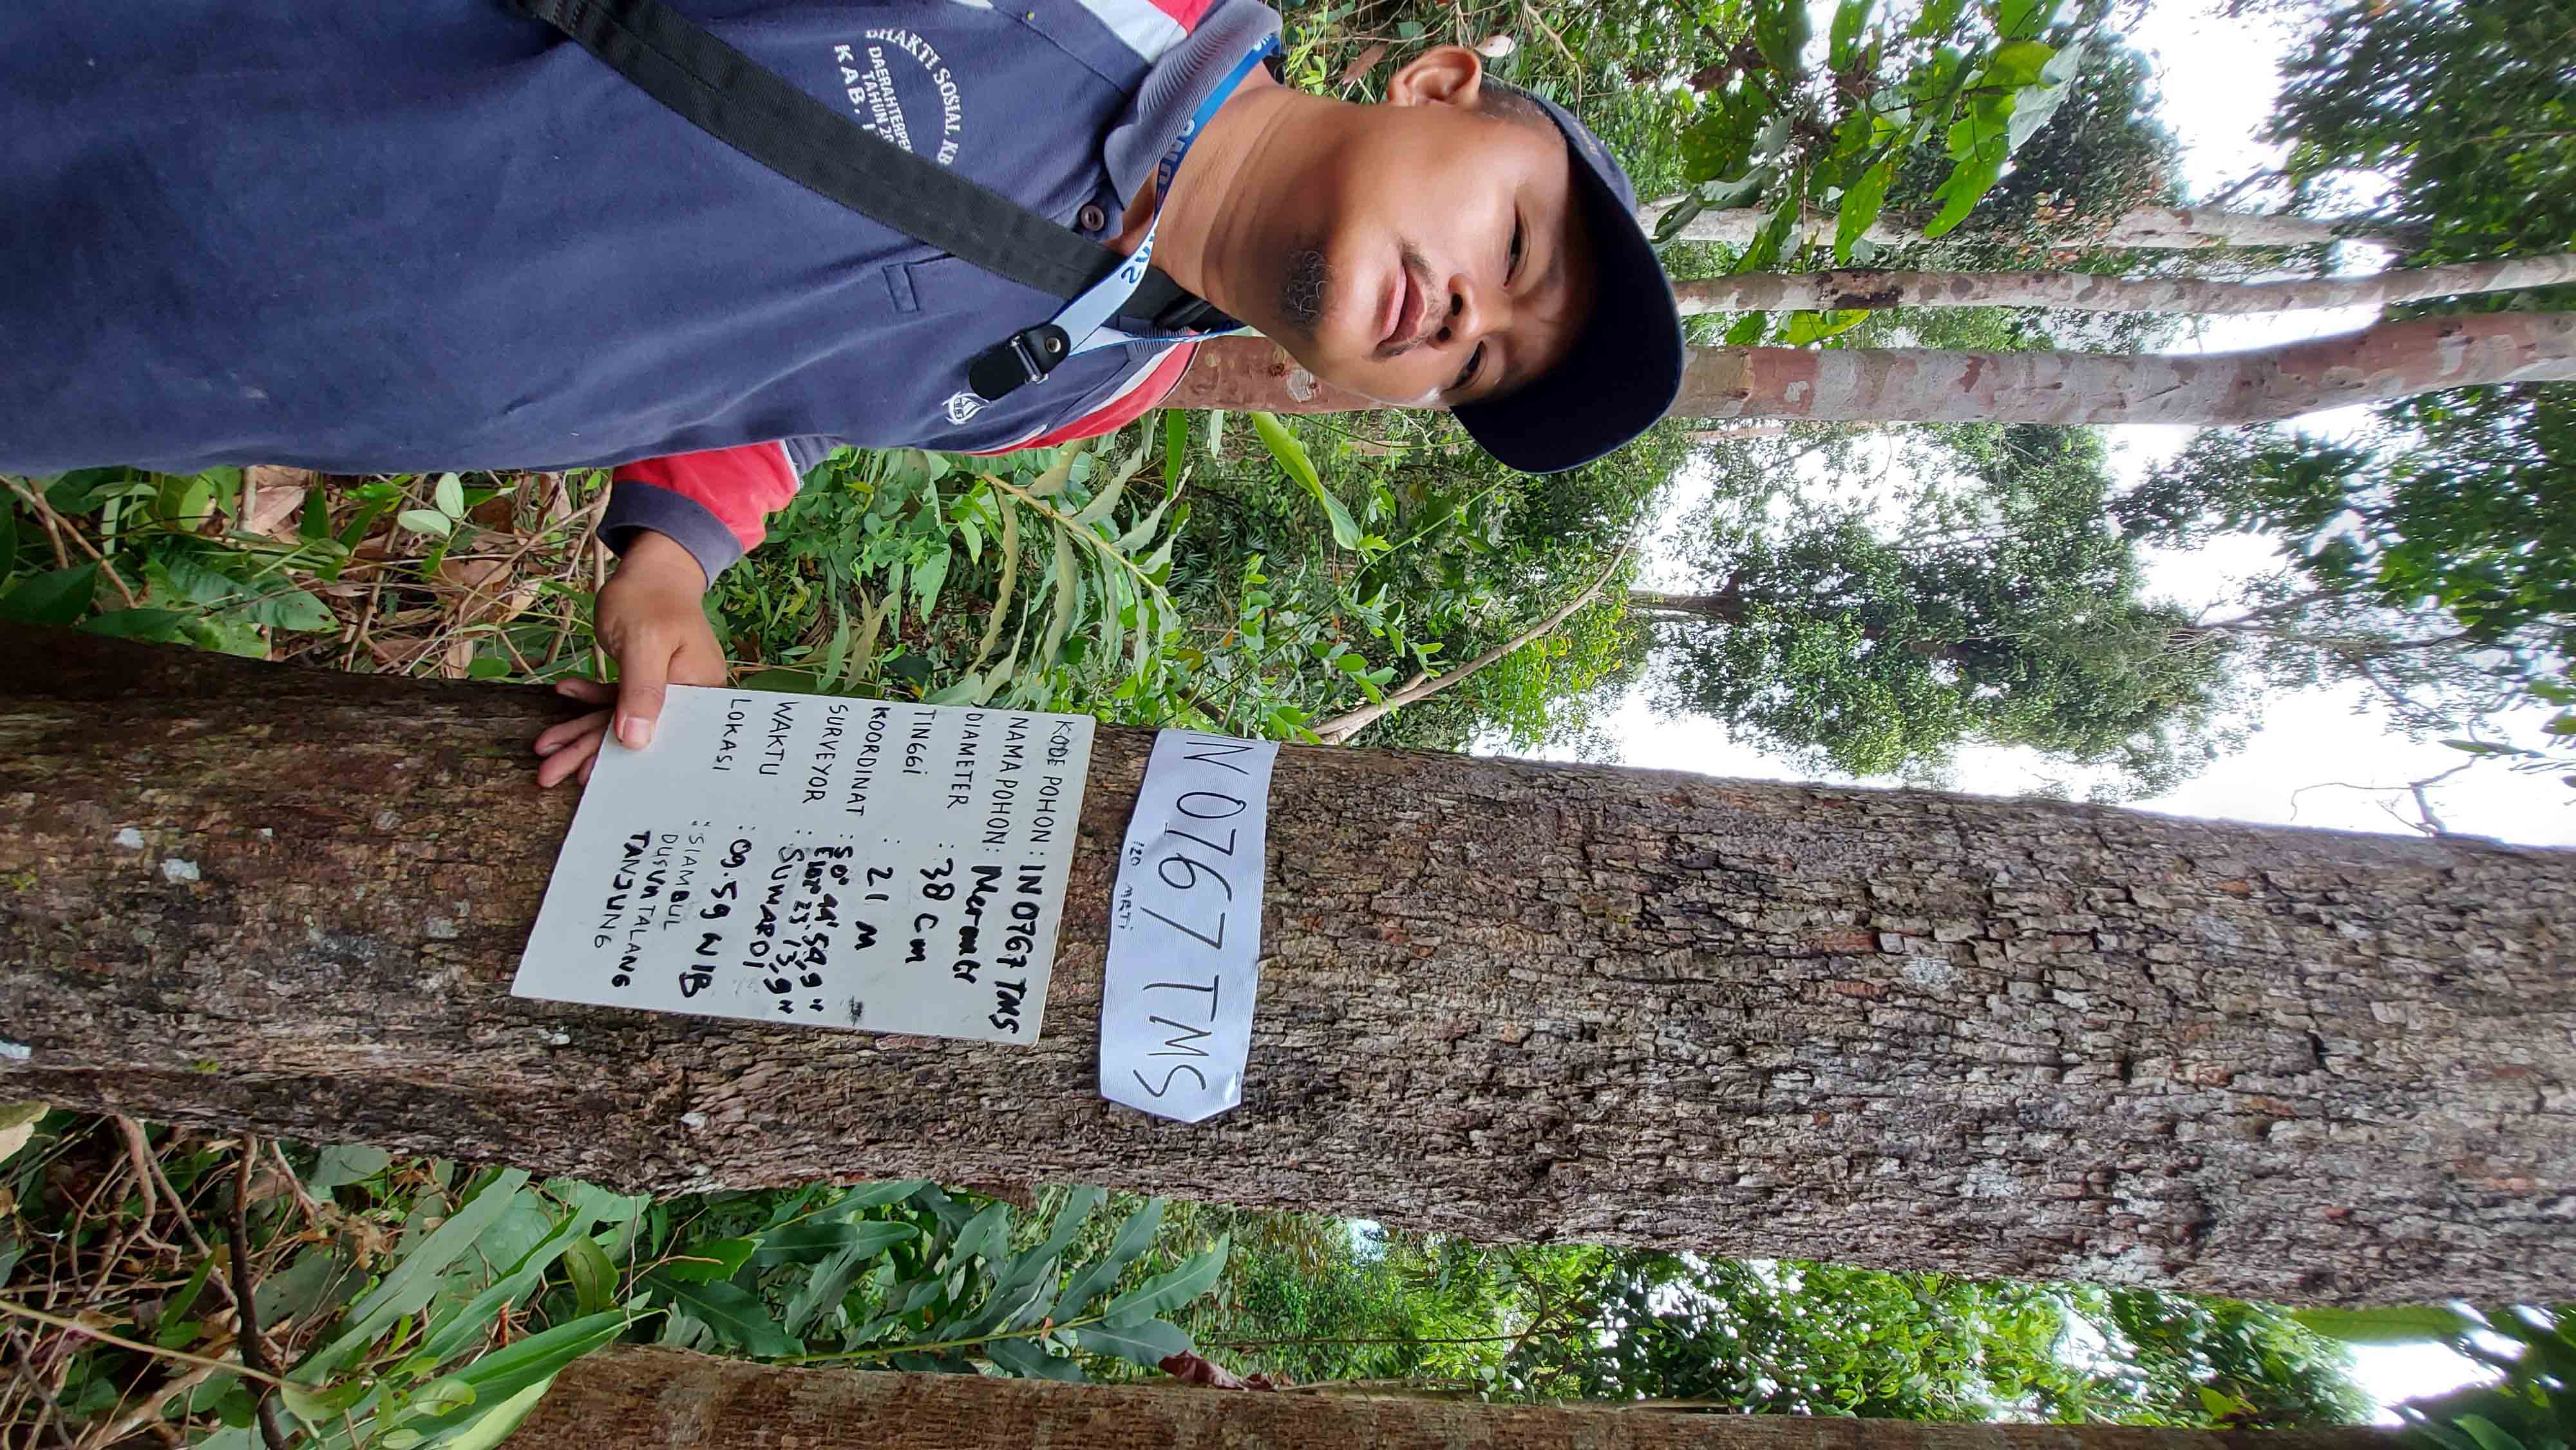 IN 0767 TMS
120 MRTi
KODE POHON : IN 0767 TMS
NAMA POHON : Meranti
DIAMETER : 38 cm
TINGGi : 21 M
KOORDINAT : S 0° 44' 54,9"
E 102° 23' 13,9"
SURVEYOR : SUMARDI
WAKTU : 09.59 WIB
LOKASI : SIAMBUL
DUSUN TALANG
TANJUNG
BHAKTI SOSIAL KB
DAERAH TERPEN
TAHUN 20
KAB. I